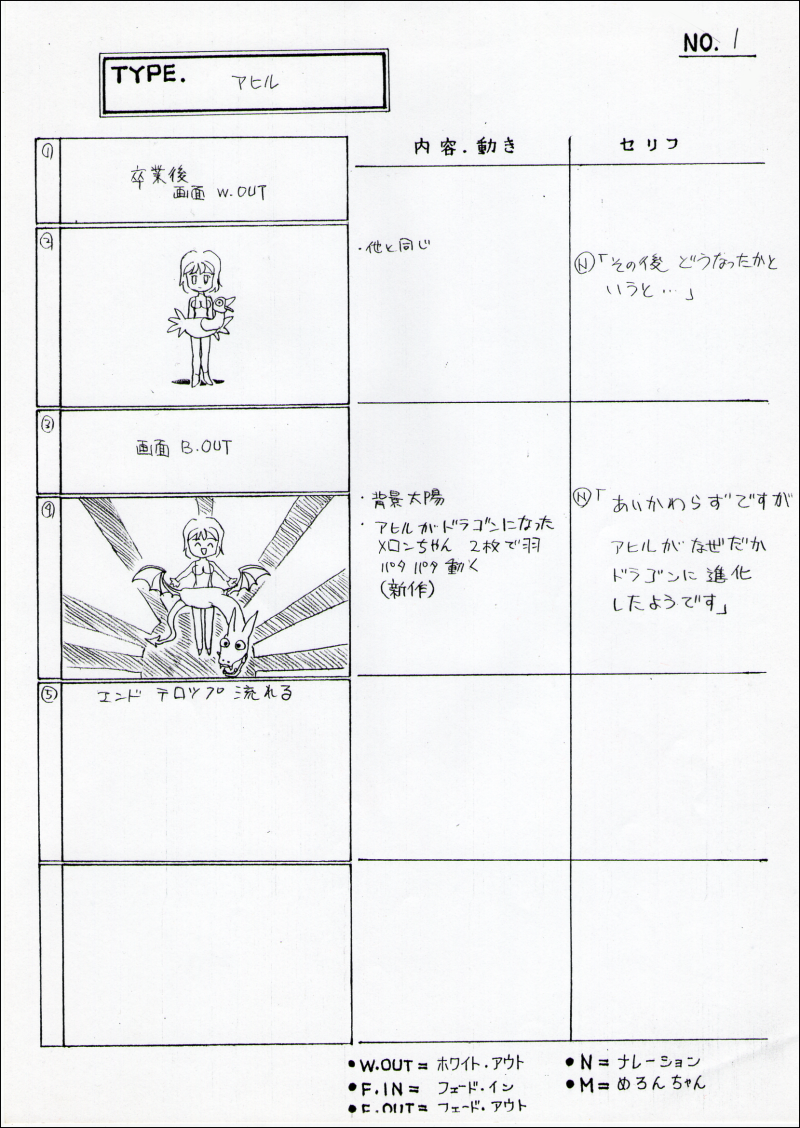 NO. 1
TYPE.
アヒル
内容.動き
セリフ
①
卒業後
画面 W.OUT
②
・他と同じ
Ⓝ「その後 どうなったかと
いうと…」
③
画面 B.OUT
④
・背景太陽
・アヒルがドラゴンになった
メロンちゃん 2枚で羽
パタパタ動く
(新作)
Ⓝ「あいかわらずですが
アヒルがなぜだか
ドラゴンに進化
したようです」
⑤
エンド テロップ流れる
●W.OUT= ホワイト.アウト
●F.IN= フェード.イン
●F.OUT= フェード.アウト
●N= ナレーション
●M= めろんちゃん